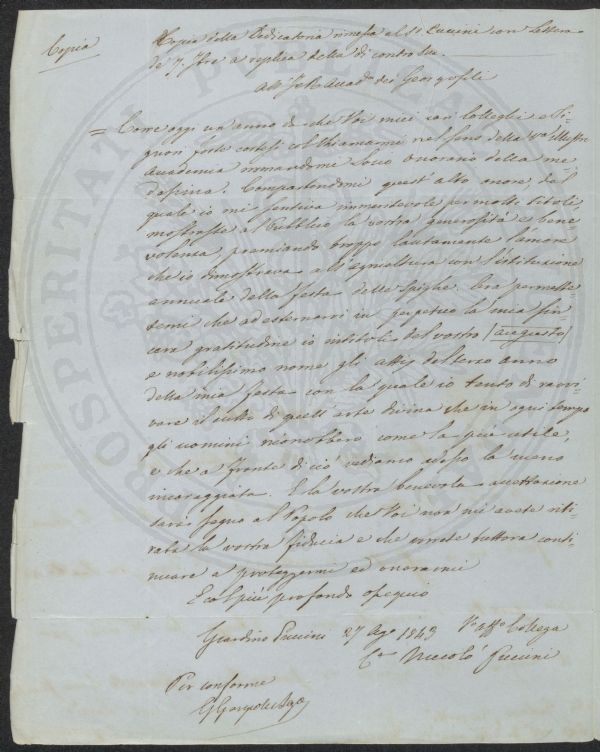 Copia
Copia della Dedicatoria rimessa al Sr Puccini con Lettera
de' 7. 7bre a replica della di contro
All' I e R. Accad. dei Georgofili
= Corre oggi un' anno da che Voi miei cari Colleghi e Si-
gnori foste cortesi col chiamarmi nel seno della Va Illustre
Accademia nominandomi Socio onorario della me-
desima. Compartendomi quest' alto onore, del
quale io mi sentiva immeritevole per molti titoli,
mostraste al Pubblico la vostra generosità e bene
volenza, premiando troppo lautamente l'amore
che io dimostrava all' agricoltura con l'istituzione
annuale della Festa delle Spighe. Ora permette-
temi che ad esternarvi in perpetuo la mia sin-
cera gratitudine io intitoli del vostro
e nobilissimo nome gli atti del terzo anno
della mia festa con la quale io tento di ravvi-
vare il culto di quell' arte divina che in ogni tempo
gli uomini riconobbero come la più utile,
e che a fronte di ciò vediamo adesso la meno
incoraggiata. E la vostra benevola accettazione
darà segno al Popolo che Voi non mi avete riti-
rata la vostra fiducia e che vorrete tuttora conti-
nuare a proteggermi ed onorarmi
E col più profondo ossequio
Giardino Puccini 27 Ago 1843 Collega
Niccolò Puccini
Per conforme
PROSPERITATI PUBLICAE